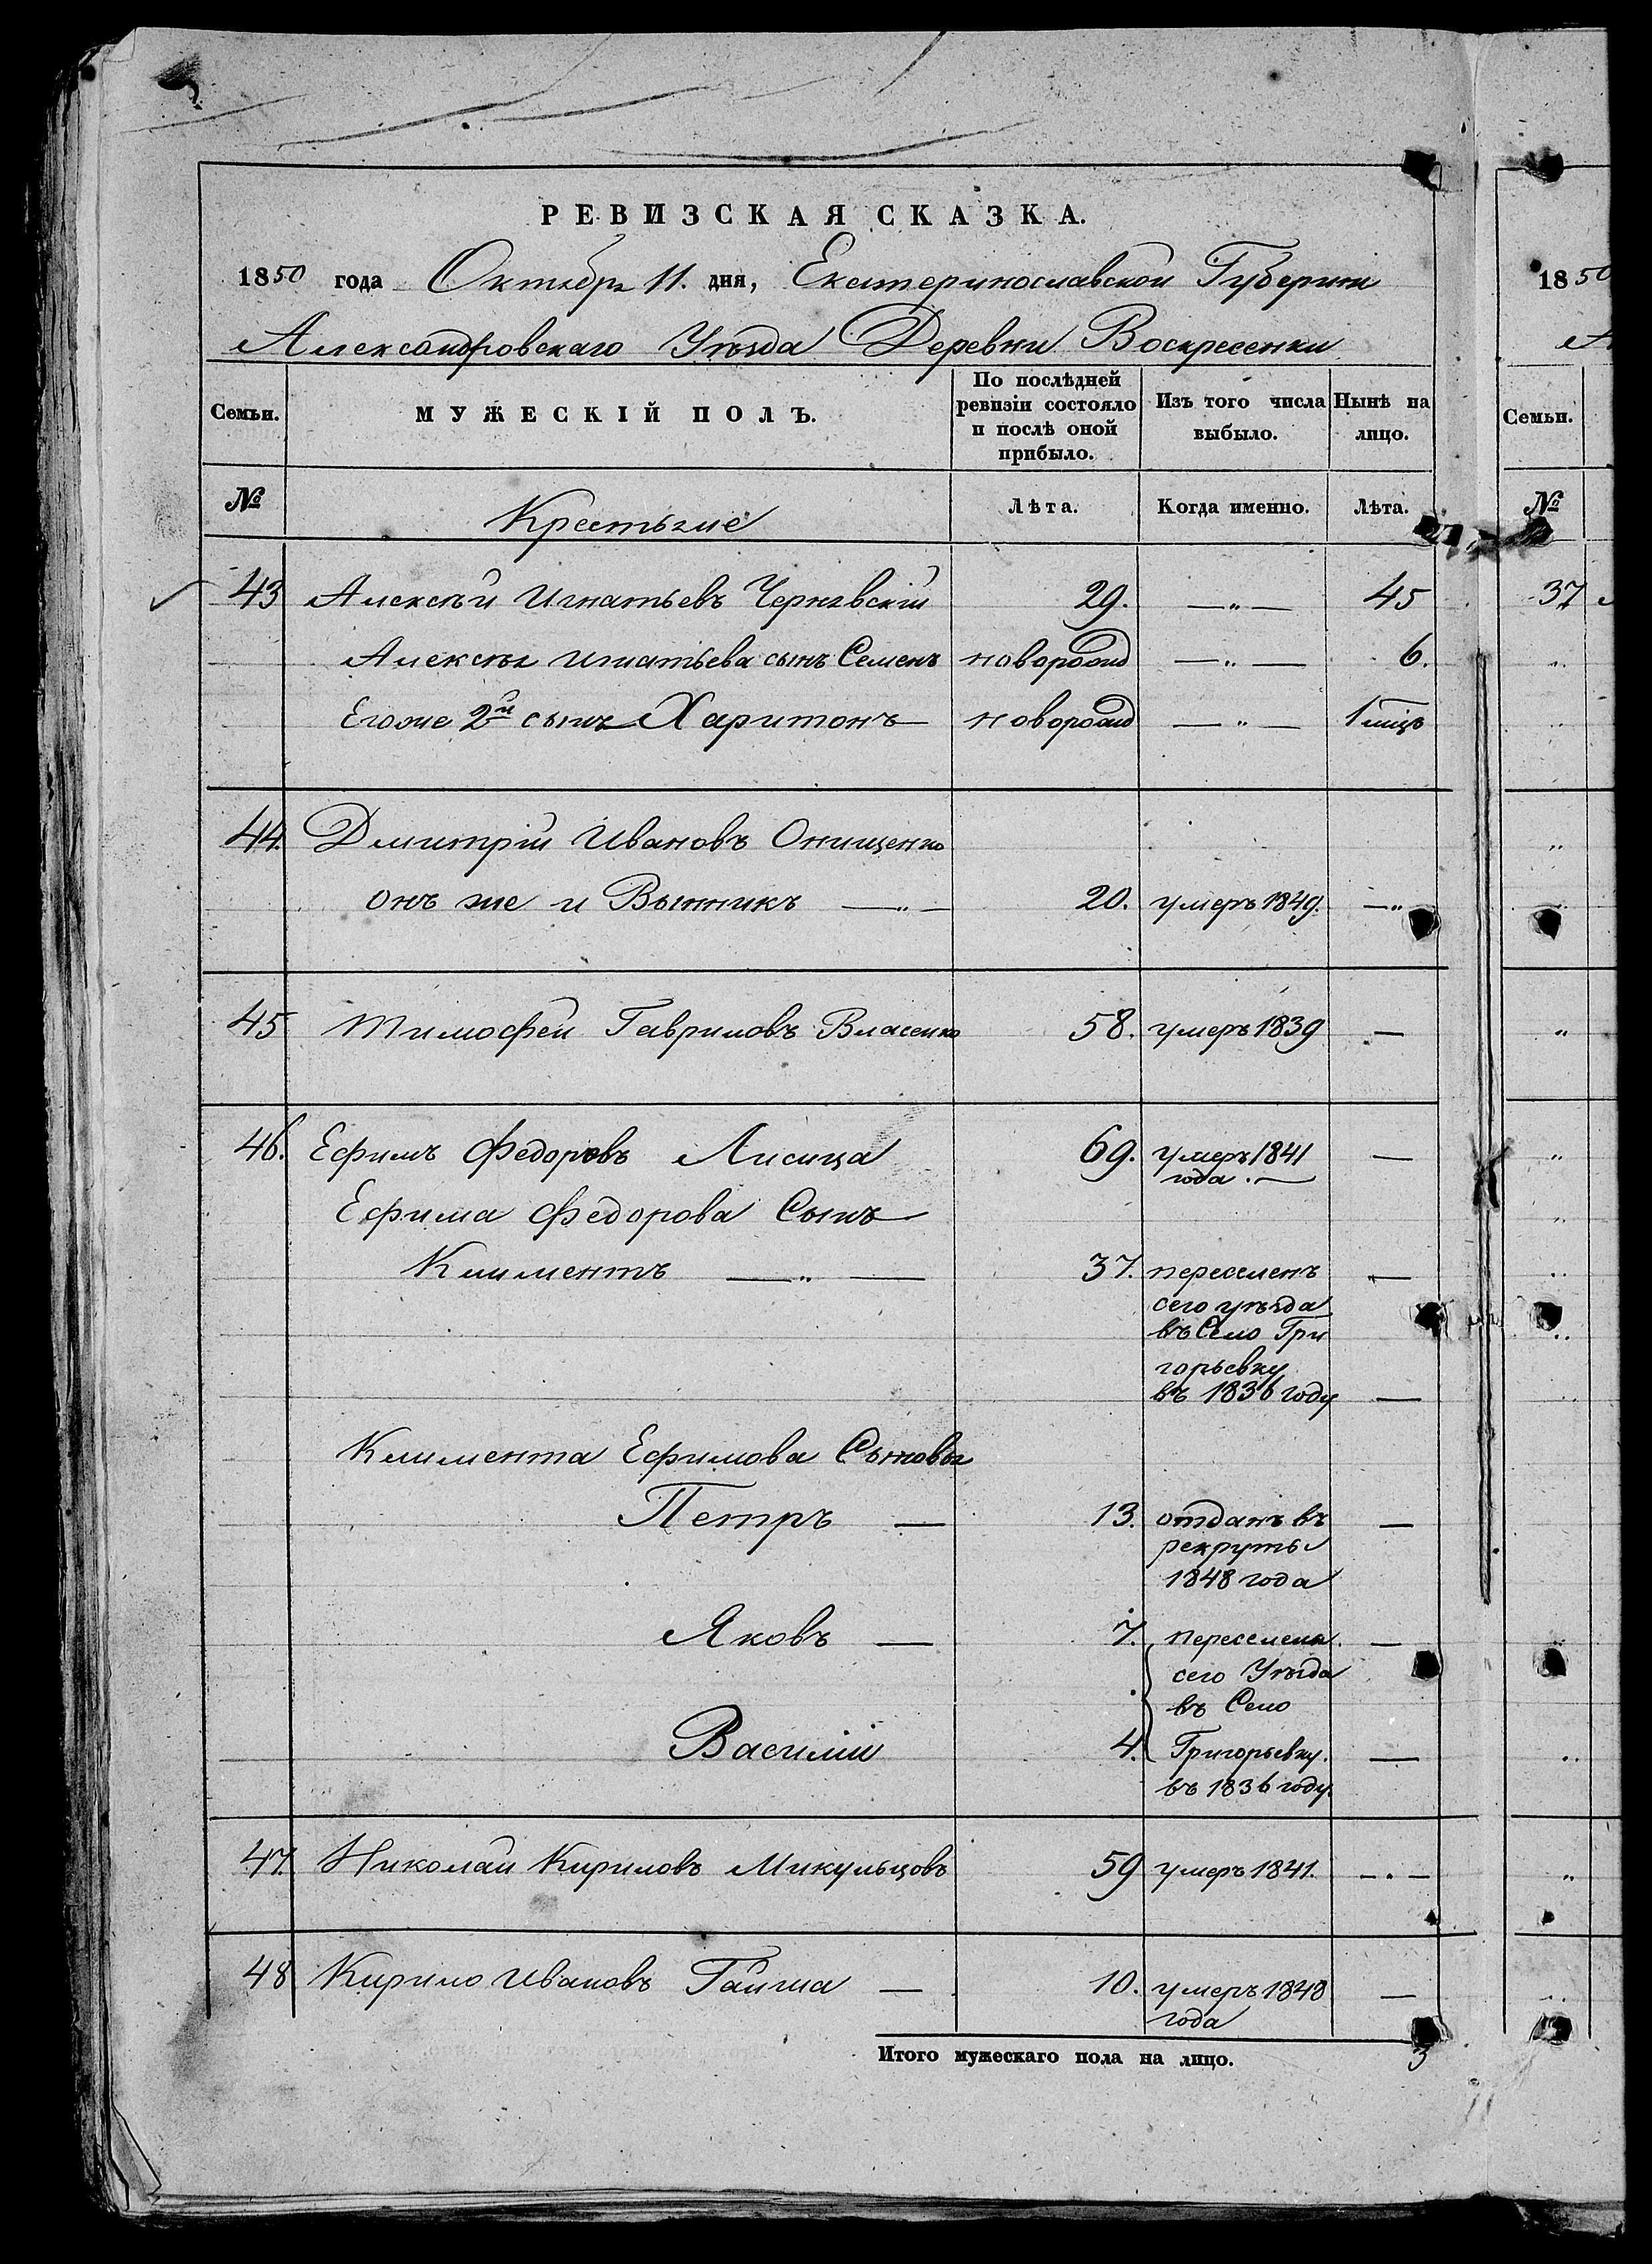 РЕВИЗСКАЯ СКАЗКА.
1850 года Октября 11. дня, Екатеринославской Губерніи
Александровскаго Уѣзда Деревни Воскресенки
Семьи. МУЖЕСКІЙ ПОЛЪ. По послѣдней ревизіи состояло и послѣ оной прибыло. Изъ того числа выбыло. Нынѣ на лицо.
№ Крестьяне Лѣта. Когда именно. Лѣта.
43 Алексѣй Игнатьевъ Чернявскій 29. —„— 45
Алексѣя Игнатьева сынъ Семенъ новорожд —„— 6.
Егоже 2й сынъ Харитонъ новорожд —„— 1 мѣц
44. Дмитрій Ивановъ Онищенко
онъ же и Вынникъ —„— 20. умеръ 1849. —„
45 Тимофей Гавриловъ Власенко 58. умеръ 1839 —
46. Ефимъ Федоровъ Лисица 69. умеръ 1841 —
года. —
Ефима Федорова Сынъ
Климентъ —„— 37. переселенъ —
сего уѣзда
въ Село Гри
горьевку
въ 1836 году —
Климента Ефимова Сыновья
Петръ — 13. отданъ въ —
рекруты
1848 года
Яковъ — 7. переселены —
сего Уѣзда
въ Село
Василій 4. Григорьевку. —
въ 1836 году.
47. Николай Кириловъ Микульцовъ 59 умеръ 1841. —„—
48 Кирило Ивановъ — 10. умеръ 1848 —
года
Итого мужескаго пола на лицо. 3
1850
Семьи.
№
37